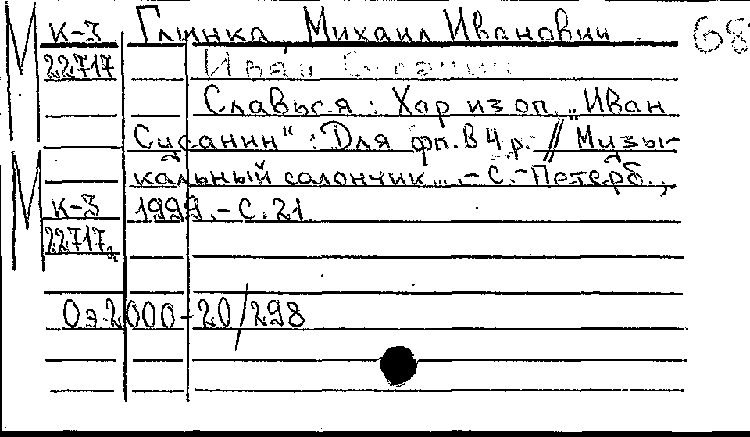 М К-3 Глинка, Михаил Иванович 68
22717 Иван Сусанин
Славься: Хор из оп. „Иван
Сусанин": Для фп. в 4 р. // Музы-
М кальный салончик... - С.-Петерб.,
К-3 1999. - С. 21.
22717а
Оэ-2000-20/298